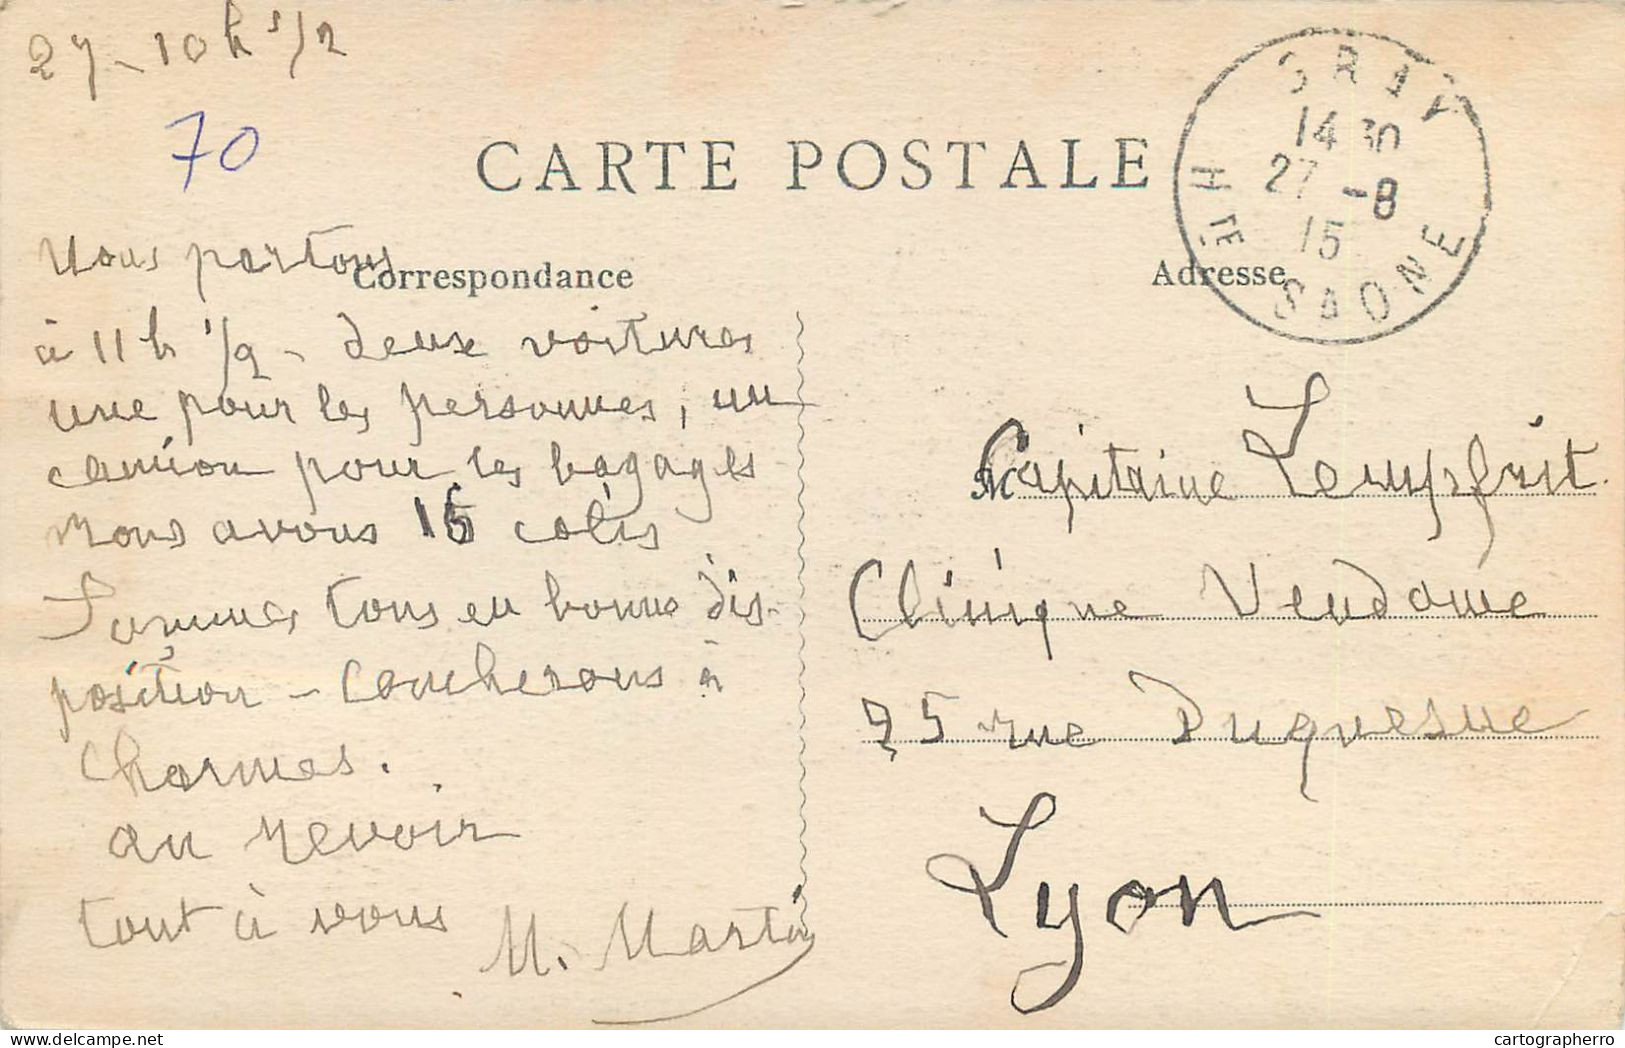 27 - 10h 1/2
70
CARTE POSTALE
GRAY
14 30
27 -8
15
HTE SAONE
Correspondance
Adresse
Nous partons
à 11 h 1/2 - deux voitures
une pour les personnes, un
camion pour les bagages
nous avons 16 colis
Sommes tous en bonne dis-
position - coucherons à
Charmes.
au revoir
tout à vous
M. Martin
Capitaine Lempfrit.
Clinique Vendome
75 rue Duquesne
Lyon
delcampe.net
cartographerro